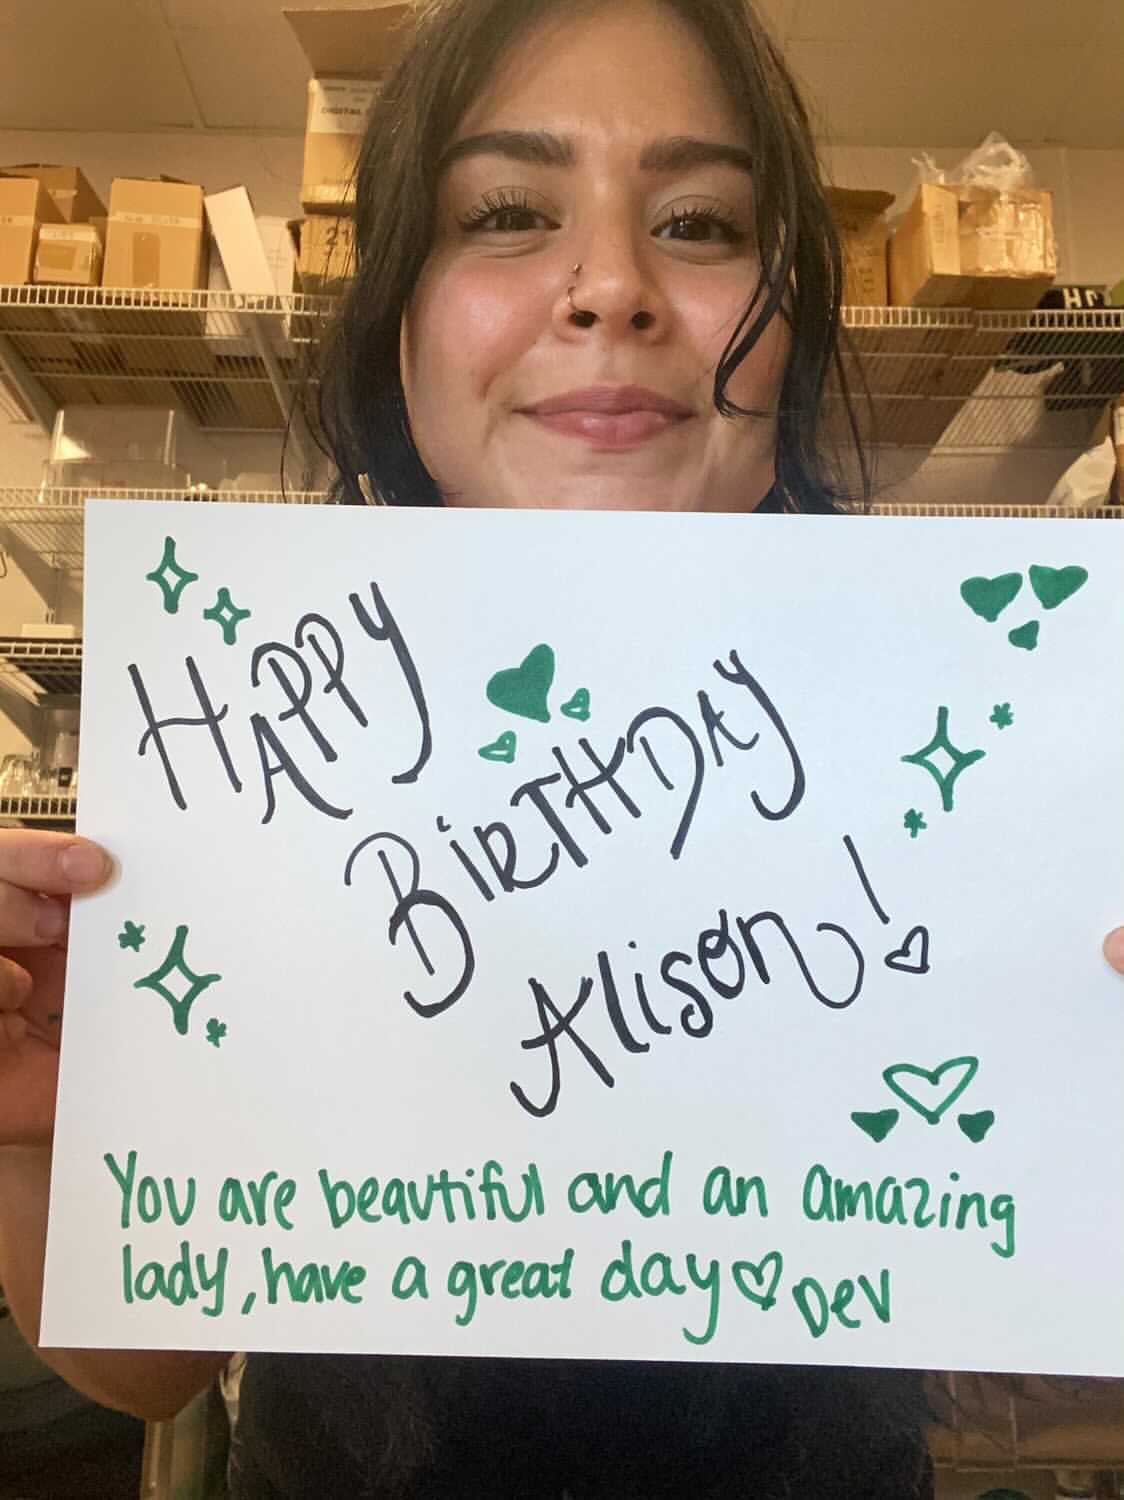 HAPPY
BIRTHDAY
Alison!
You are beautiful and an amazing
lady, have a great day Dev
21
HO